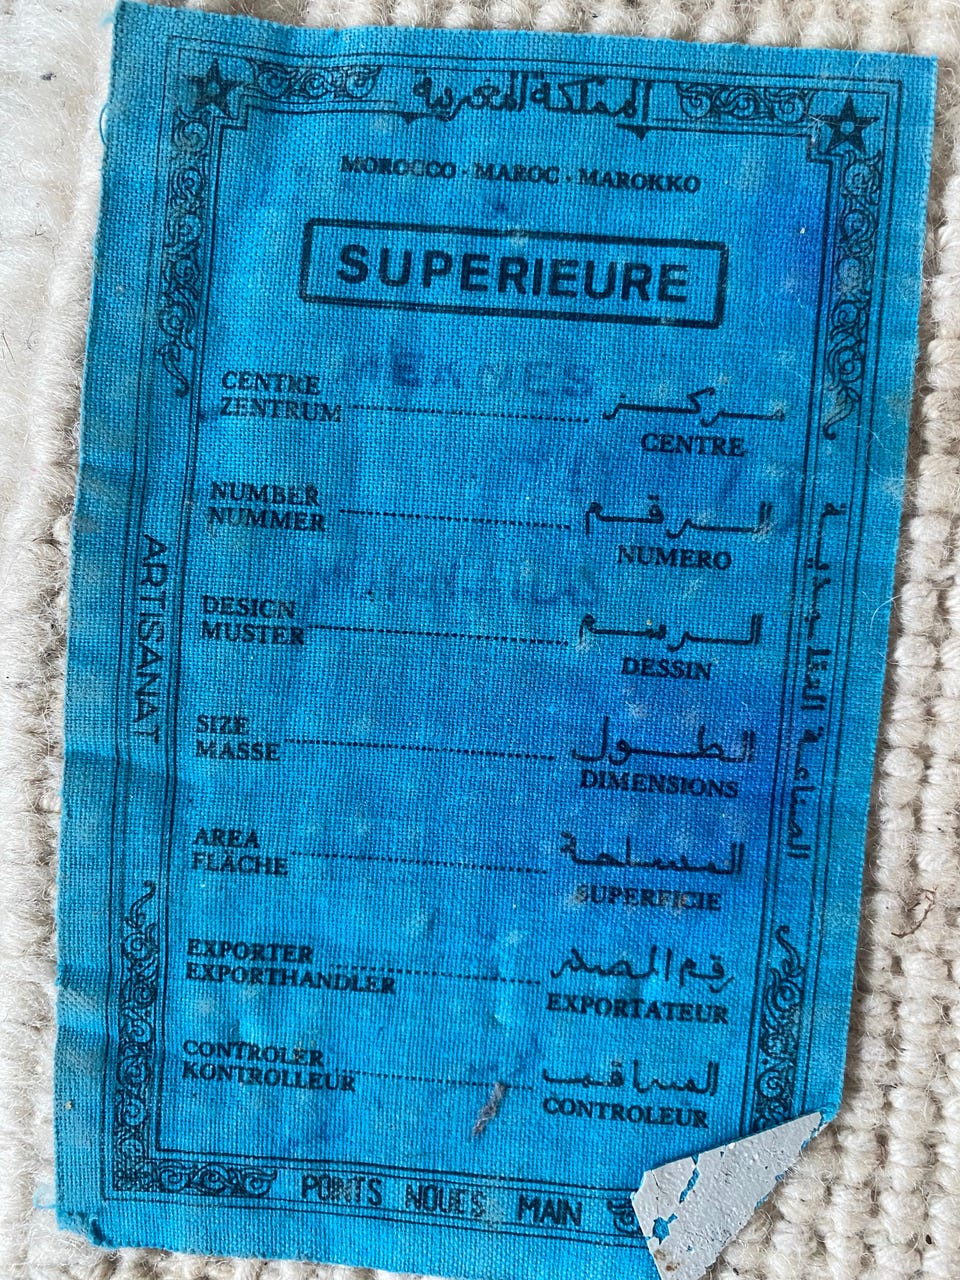 المملكة المغربية
MOROCCO · MAROC · MAROKKO
SUPERIEURE
MEKNES
CENTRE
ZENTRUM
مركز
CENTRE
NUMBER
NUMMER
الرقم
NUMERO
DESIGN
MUSTER
الرسم
DESSIN
SIZE
MASSE
الطول
DIMENSIONS
AREA
FLÄCHE
المساحة
SUPERFICIE
EXPORTER
EXPORTHANDLER
رقم المصدر
EXPORTATEUR
CONTROLER
KONTROLLEUR
المراقب
CONTROLEUR
ARTISANAT
الصناعة التقليدية
POINTS NOUES MAIN